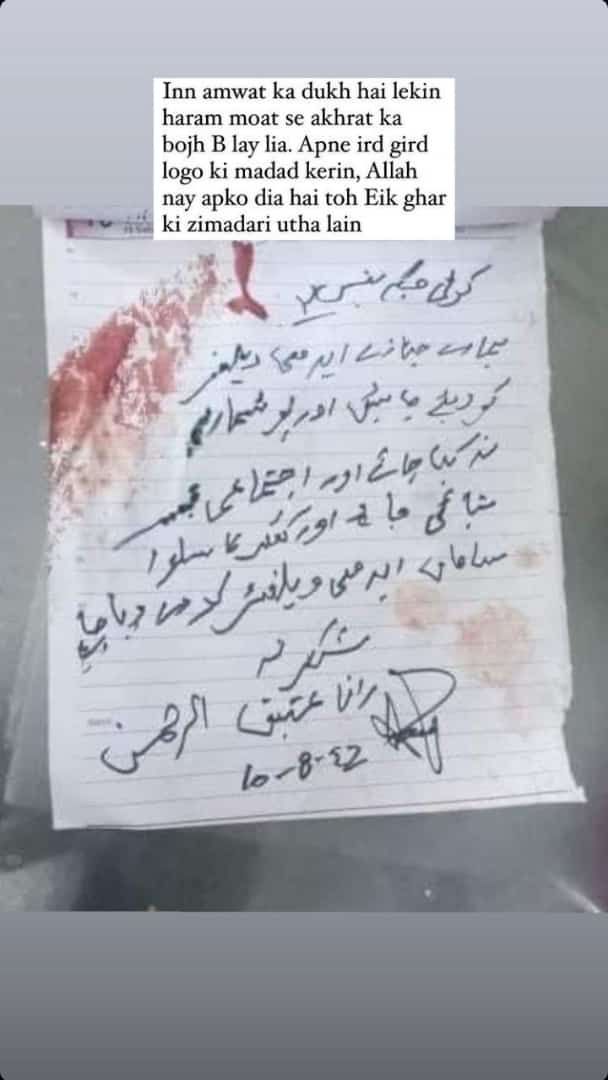 Inn amwat ka dukh hai lekin
haram moat se akhrat ka
bojh B lay lia. Apne ird gird
logo ki madad kerin, Allah
nay apko dia hai toh Eik ghar
ki zimadari utha lain
کوئی جگہ نہیں
ہمارے جنازے ایدھی ویلفئر
کو دیئے جائیں اور پوسٹمارٹم
نہ کیا جائے اور اجتماعی قبر
بنائی جائے اور گھر کا سارا
سامان ایدھی ویلفئر کو دے دیا جائے
شکریہ
رانا عتیق الرحمن